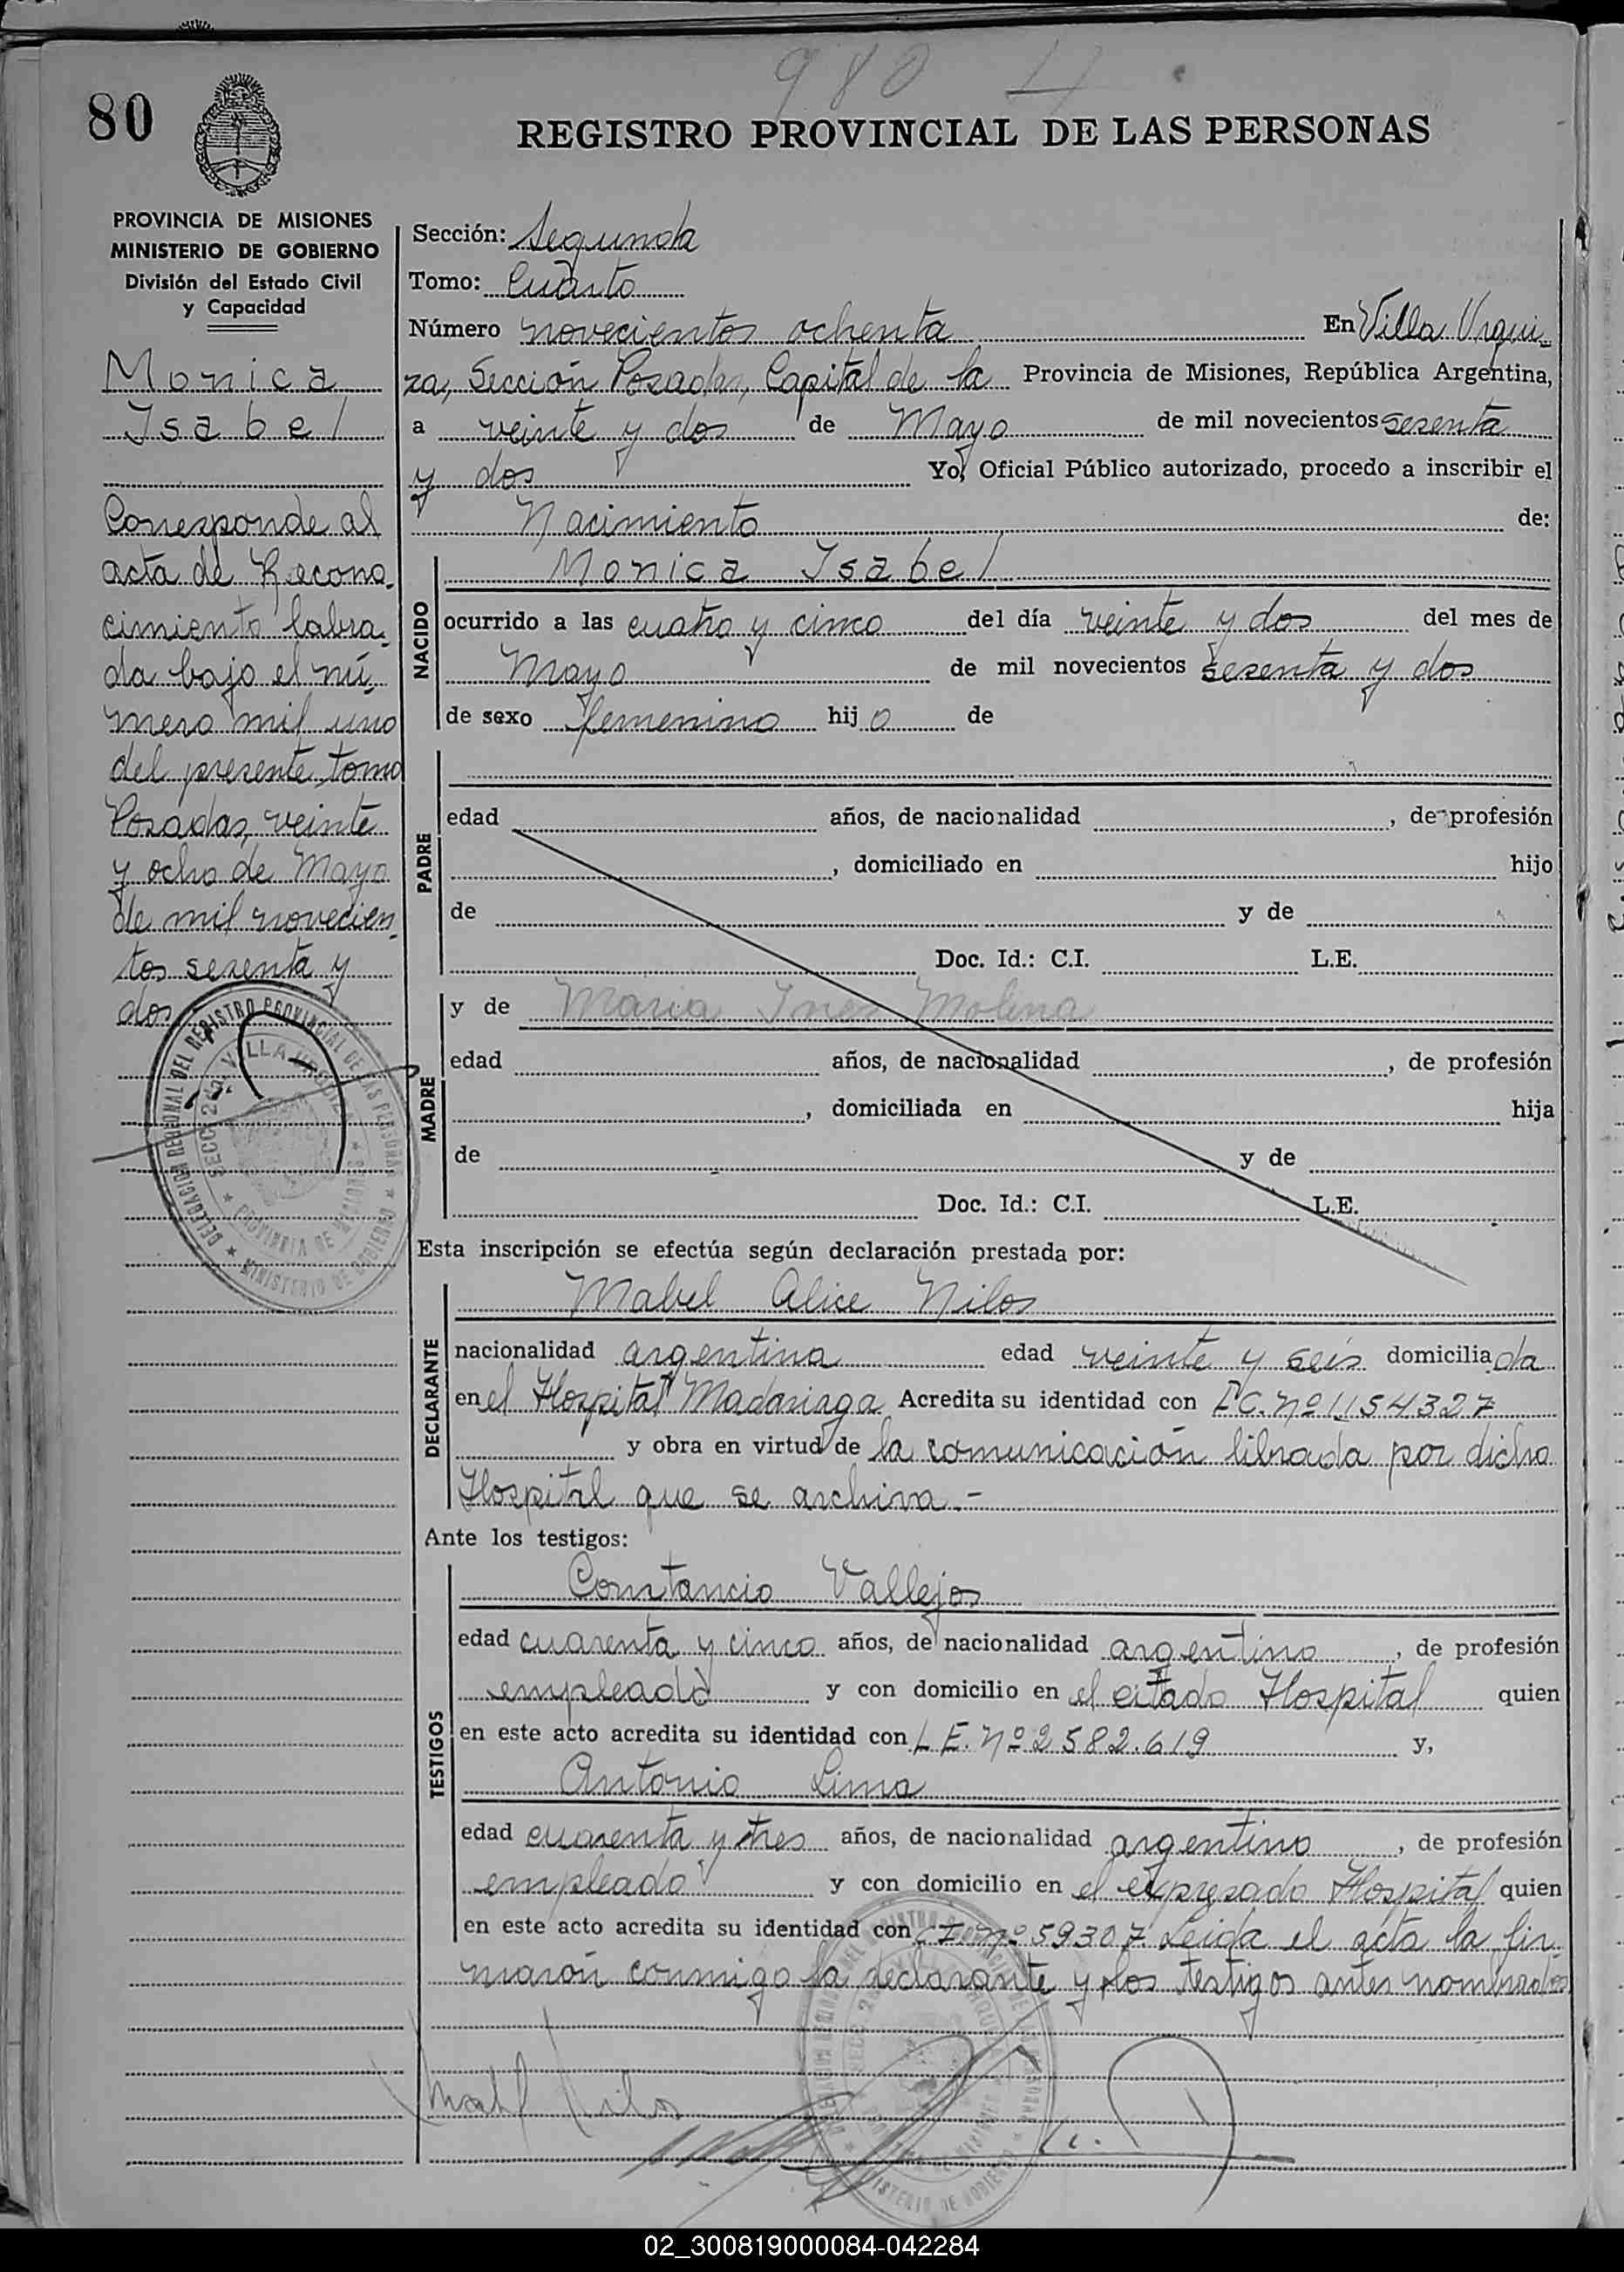 980 4
80
REGISTRO PROVINCIAL DE LAS PERSONAS
PROVINCIA DE MISIONES
MINISTERIO DE GOBIERNO
División del Estado Civil
y Capacidad
Monica
Isabel
Corresponde al
acta de Recono-
cimiento labra-
da bajo el nú-
mero mil uno
del presente tomo
Posadas, veinte
y ocho de Mayo
de mil novecien-
tos sesenta y
dos
DELEGACION REGIONAL DEL REGISTRO PROVINCIAL DE LAS PERSONAS
SECC. 2da. VILLA URQUIZA
PROVINCIA DE MISIONES
MINISTERIO DE GOBIERNO
Sección: Segunda
Tomo: Cuarto
Número novecientos ochenta En Villa Urqui-
za, Sección Posadas, Capital de la Provincia de Misiones, República Argentina,
a veinte y dos de Mayo de mil novecientos sesenta
y dos Yo, Oficial Público autorizado, procedo a inscribir el
Nacimiento de:
NACIDO
Monica Isabel
ocurrido a las cuatro y cinco del día veinte y dos del mes de
Mayo de mil novecientos sesenta y dos
de sexo femenino hij a de
PADRE
edad años, de nacionalidad , de profesión
, domiciliado en hijo
de y de
Doc. Id.: C.I. L.E.
MADRE
y de Maria Ines Molina
edad años, de nacionalidad , de profesión
, domiciliada en hija
de y de
Doc. Id.: C.I. L.E.
Esta inscripción se efectúa según declaración prestada por:
DECLARANTE
Mabel Alice Nilos
nacionalidad argentina edad veinte y seis domiciliada
en el Hospital Madariaga Acredita su identidad con L.C. Nº 1.154327
y obra en virtud de la comunicación librada por dicho
Hospital que se archiva.-
Ante los testigos:
TESTIGOS
Constancio Vallejos
edad cuarenta y cinco años, de nacionalidad argentino, de profesión
empleado y con domicilio en el citado Hospital quien
en este acto acredita su identidad con L.E. Nº 2582.619 y,
Antonio Lima
edad cuarenta y tres años, de nacionalidad argentino, de profesión
empleado y con domicilio en el expresado Hospital quien
en este acto acredita su identidad con C.I. Nº 59307. Leida el acta la fir-
maron conmigo la declarante y los testigos antes nombrados
Mabel Nilos
02_300819000084-042284